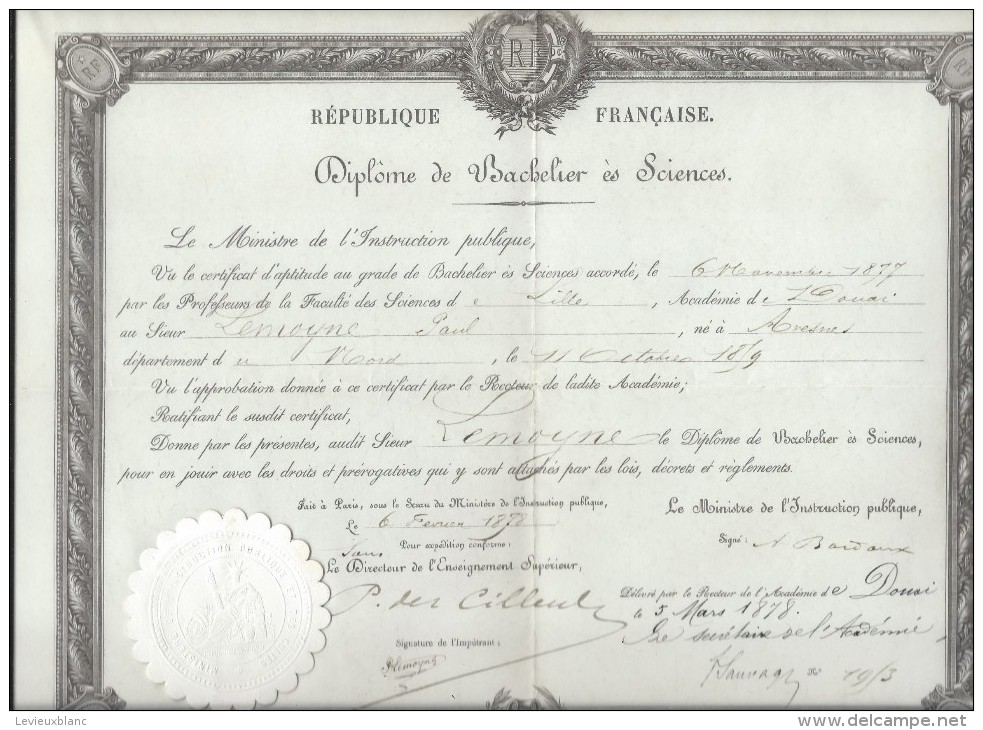 RF
RF
RF
RÉPUBLIQUE FRANÇAISE.
Diplôme de Bachelier ès Sciences.
Le Ministre de l'Instruction publique,
Vu le certificat d'aptitude au grade de Bachelier ès Sciences accordé, le 6 Novembre 1877
par les Professeurs de la Faculté des Sciences de Lille, Académie de Douai
au Sieur Lemoyne Paul, né à Avesnes
département du Nord, le 11 Octobre
Vu l'approbation donnée à ce certificat par le Recteur de ladite Académie;
Ratifiant le susdit certificat,
Donne par les présentes, audit Sieur Lemoyne le Diplôme de Bachelier ès Sciences,
pour en jouir avec les droits et prérogatives qui y sont attachés par les lois, décrets et règlements.
Fait à Paris, sous le Sceau du Ministère de l'Instruction publique,
Le 6 Février 1878
Le Ministre de l'Instruction publique,
Signé: A Bardoux
Pour expédition conforme:
Le Directeur de l'Enseignement Supérieur,
P. des Cilleuls
Délivré par le Recteur de l'Académie de Douai
le 5 Mars 1878.
Le secrétaire de l'Académie,
Signature de l'Impétrant:
PLemoyne
19/3
Levieuxblanc
delcampe.net